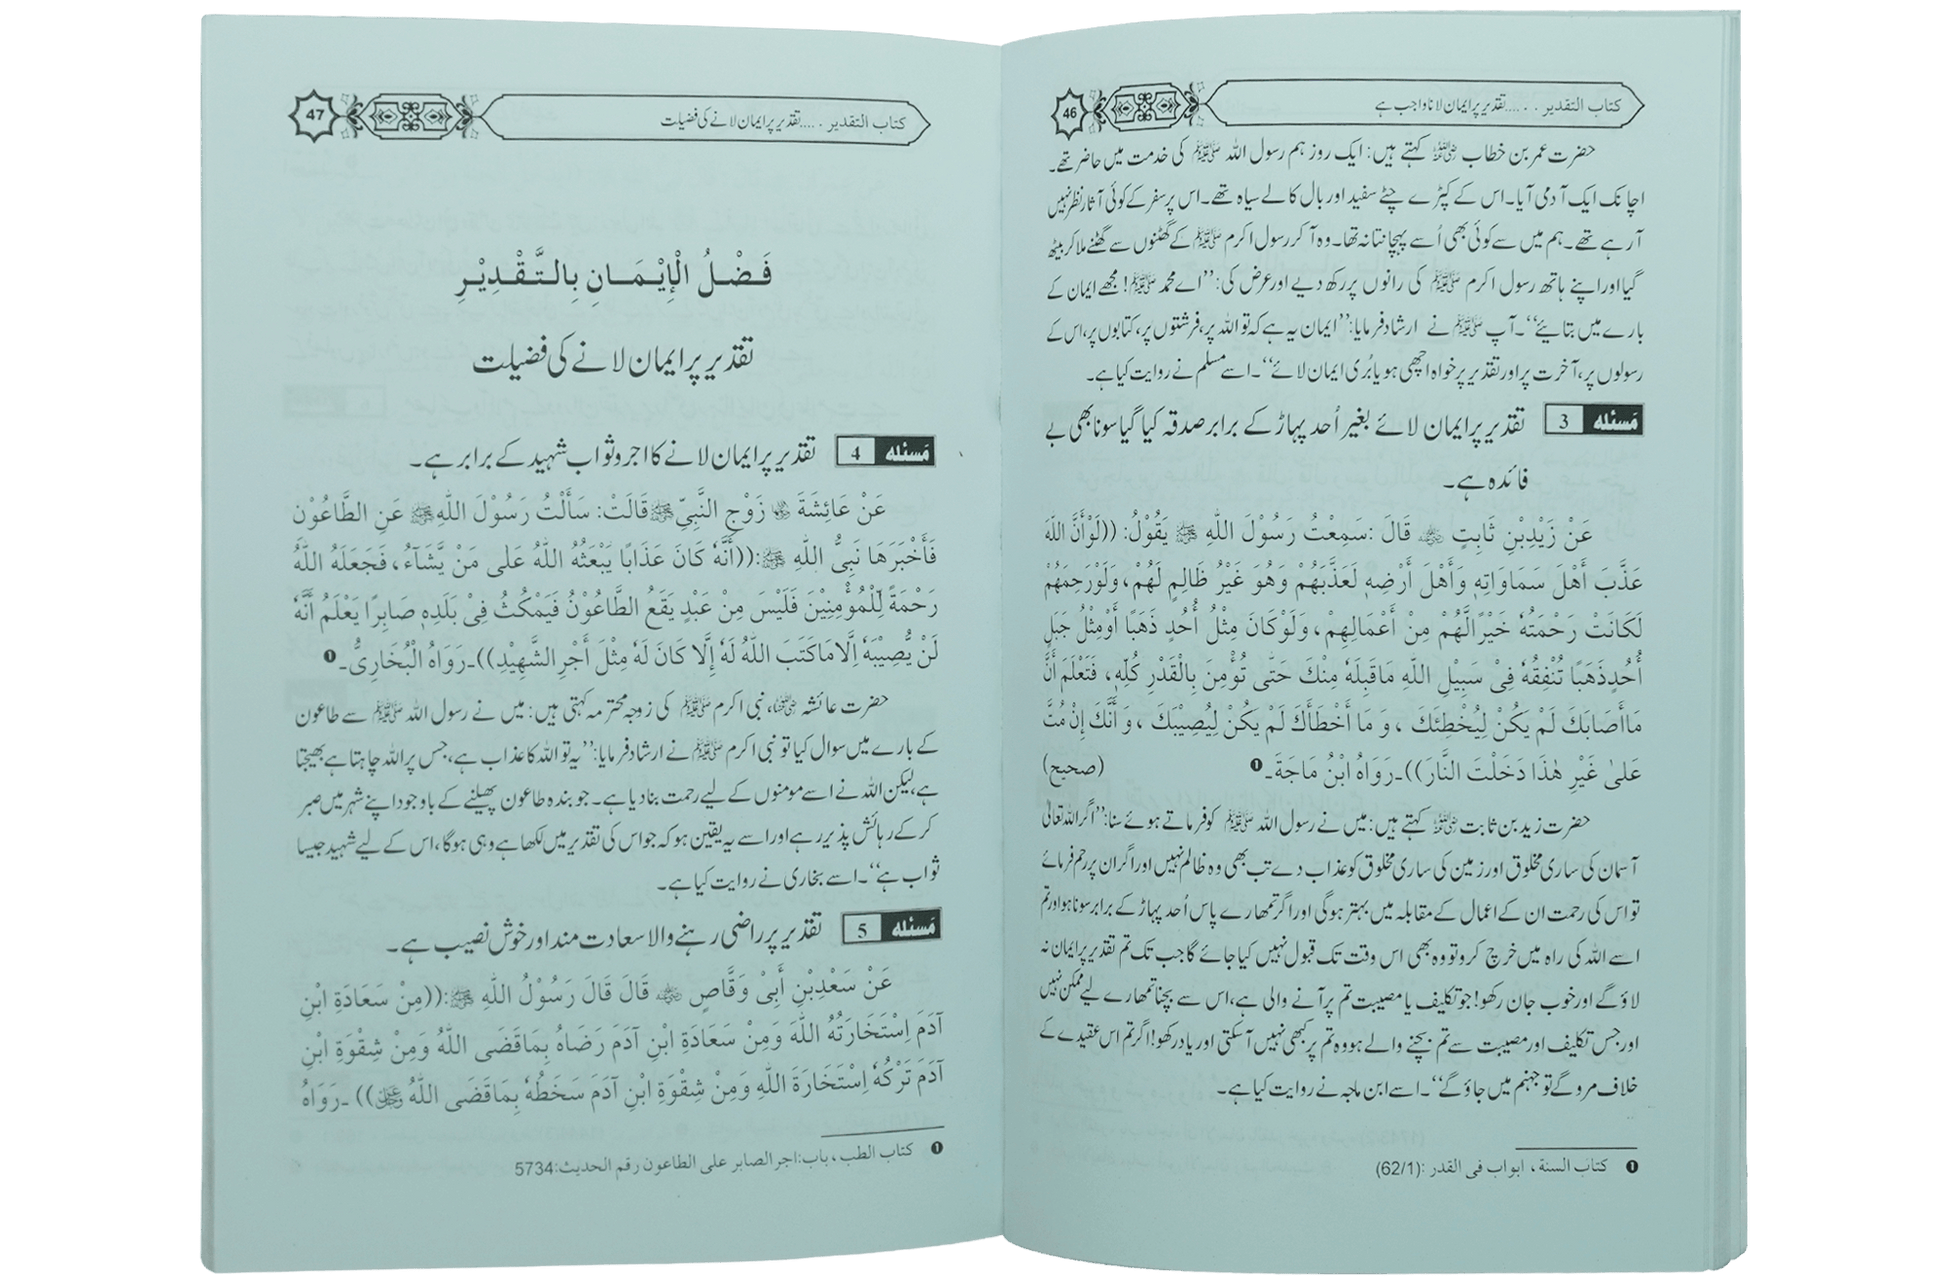 كتاب التقدير . . ....تقدیر پر ایمان لانا واجب ہے
46
حضرت عمر بن خطاب رضی اللہ عنہ کہتے ہیں: ایک روز ہم رسول اللہ ﷺ کی خدمت میں حاضر تھے۔
اچانک ایک آدمی آیا۔ اس کے کپڑے چٹے سفید اور بال کالے سیاہ تھے۔ اس پر سفر کے کوئی آثار نظر نہیں
آ رہے تھے۔ ہم میں سے کوئی بھی اُسے پہچانتا نہ تھا۔ وہ آ کر رسول اکرم ﷺ کے گھٹنوں سے گھٹنے ملا کر بیٹھ
گیا اور اپنے ہاتھ رسول اکرم ﷺ کی رانوں پر رکھ دیے اور عرض کی: ’’اے محمد ﷺ! مجھے ایمان کے
بارے میں بتائیے‘‘۔ آپ ﷺ نے ارشاد فرمایا: ’’ایمان یہ ہے کہ تو اللہ پر، فرشتوں پر، کتابوں پر، اس کے
رسولوں پر، آخرت پر اور تقدیر پر خواہ اچھی ہو یا بُری ایمان لائے‘‘۔ اسے مسلم نے روایت کیا ہے۔
مَسئلہ 3 تقدیر پر ایمان لائے بغیر اُحد پہاڑ کے برابر صدقہ کیا گیا سونا بھی بے
فائدہ ہے۔
عَنْ زَيْدِبْنِ ثَابِتٍ رضی اللہ عنہ قَالَ :سَمِعْتُ رَسُوْلَ اللهِ ﷺ يَقُوْلُ: ((لَوْأَنَّ اللّٰهَ
عَذَّبَ أَهْلَ سَمَاوَاتِهٖ وَأَهْلَ أَرْضِهٖ لَعَذَّبَهُمْ وَهُوَ غَيْرُ ظَالِمٍ لَهُمْ، وَلَوْرَحِمَهُمْ
لَكَانَتْ رَحْمَتُهٗ خَيْرًالَّهُمْ مِنْ أَعْمَالِهِمْ، وَلَوْكَانَ مِثْلُ أُحُدٍ ذَهَبًا أَوْمِثْلُ جَبَلِ
أُحُدٍذَهَبًا تُنْفِقُهٗ فِيْ سَبِيْلِ اللّٰهِ مَاقَبِلَهٗ مِنْكَ حَتّٰى تُؤْمِنَ بِالْقَدْرِ كُلِّهٖ، فَتَعْلَمَ أَنَّ
مَاأَصَابَكَ لَمْ يَكُنْ لِيُخْطِئَكَ ، وَ مَا أَخْطَأَكَ لَمْ يَكُنْ لِيُصِيْبَكَ ، وَ أَنَّكَ إِنْ مُتَّ
عَلىٰ غَيْرِ هٰذَا دَخَلْتَ النَّارَ))۔رَوَاهُ ابْنُ مَاجَةَ۔❶ (صحيح)
حضرت زید بن ثابت رضی اللہ عنہ کہتے ہیں: میں نے رسول اللہ ﷺ کو فرماتے ہوئے سنا: ’’اگر اللہ تعالیٰ
آسمان کی ساری مخلوق اور زمین کی ساری مخلوق کو عذاب دے تب بھی وہ ظالم نہیں اور اگر ان پر رحم فرمائے
تو اس کی رحمت ان کے اعمال کے مقابلہ میں بہتر ہوگی اور اگر تمھارے پاس اُحد پہاڑ کے برابر سونا ہو اور تم
اسے اللہ کی راہ میں خرچ کرو تو وہ بھی اس وقت تک قبول نہیں کیا جائے گا جب تک تم تقدیر پر ایمان نہ
لاؤ گے اور خوب جان رکھو! جو تکلیف یا مصیبت تم پر آنے والی ہے، اس سے بچنا تمھارے لیے ممکن نہیں
اور جس تکلیف اور مصیبت سے تم بچنے والے ہو وہ تم پر کبھی نہیں آ سکتی اور یاد رکھو! اگر تم اس عقیدے کے
خلاف مرو گے تو جہنم میں جاؤ گے‘‘۔ اسے ابن ماجہ نے روایت کیا ہے۔
❶ كتاب السنة ، ابواب فى القدر :(62/1)
كتاب التقدير . ....تقدیر پر ایمان لانے کی فضیلت
47
فَـضْـلُ الْإِيْـمَـانِ بِالـتَّـقْـدِيْـرِ
تقدیر پر ایمان لانے کی فضیلت
مَسئلہ 4 تقدیر پر ایمان لانے کا اجر و ثواب شہید کے برابر ہے۔
عَنْ عَائِشَةَ رضی اللہ عنہا زَوْجِ النَّبِيِّ ﷺ قَالَتْ: سَأَلْتُ رَسُوْلَ اللّٰهِ ﷺ عَنِ الطَّاعُوْنِ
فَأَخْبَرَهَا نَبِيُّ اللّٰهِ ﷺ:((أَنَّهٗ كَانَ عَذَابًا يَبْعَثُهُ اللّٰهُ عَلٰى مَنْ يَّشَآءُ، فَجَعَلَهُ اللّٰهُ
رَحْمَةً لِّلْمُؤْمِنِيْنَ فَلَيْسَ مِنْ عَبْدٍ يَقَعُ الطَّاعُوْنُ فَيَمْكُثُ فِيْ بَلَدِهٖ صَابِرًا يَعْلَمُ أَنَّهٗ
لَنْ يُّصِيْبَهٗ اِلَّامَاكَتَبَ اللّٰهُ لَهٗ إِلَّا كَانَ لَهٗ مِثْلَ أَجْرِ الشَّهِيْدِ))۔رَوَاهُ الْبُخَارِيُّ۔❶
حضرت عائشہ رضی اللہ عنہا، نبی اکرم ﷺ کی زوجہ محترمہ کہتی ہیں: میں نے رسول اللہ ﷺ سے طاعون
کے بارے میں سوال کیا تو نبی اکرم ﷺ نے ارشاد فرمایا: ’’یہ تو اللہ کا عذاب ہے، جس پر اللہ چاہتا ہے بھیجتا
ہے، لیکن اللہ نے اسے مومنوں کے لیے رحمت بنا دیا ہے۔ جو بندہ طاعون پھیلنے کے باوجود اپنے شہر میں صبر
کر کے رہائش پذیر رہے اور اسے یہ یقین ہو کہ جو اس کی تقدیر میں لکھا ہے وہی ہوگا، اس کے لیے شہید جیسا
ثواب ہے‘‘۔ اسے بخاری نے روایت کیا ہے۔
مَسئلہ 5 تقدیر پر راضی رہنے والا سعادت مند اور خوش نصیب ہے۔
عَنْ سَعْدِبْنِ أَبِيْ وَقَّاصٍ رضی اللہ عنہ قَالَ قَالَ رَسُوْلُ اللّٰهِ ﷺ:((مِنْ سَعَادَةِ ابْنِ
آدَمَ اِسْتَخَارَتُهُ اللّٰهَ وَمِنْ سَعَادَةِ ابْنِ آدَمَ رَضَاهُ بِمَاقَضَى اللّٰهُ وَمِنْ شِقْوَةِ ابْنِ
آدَمَ تَرْكُهٗ اِسْتَخَارَةَ اللّٰهِ وَمِنْ شِقْوَةِ ابْنِ آدَمَ سَخَطُهٗ بِمَاقَضَى اللّٰهُ عزوجل)) ۔رَوَاهُ
❶ كتاب الطب ، باب:اجر الصابر على الطاعون رقم الحديث:5734